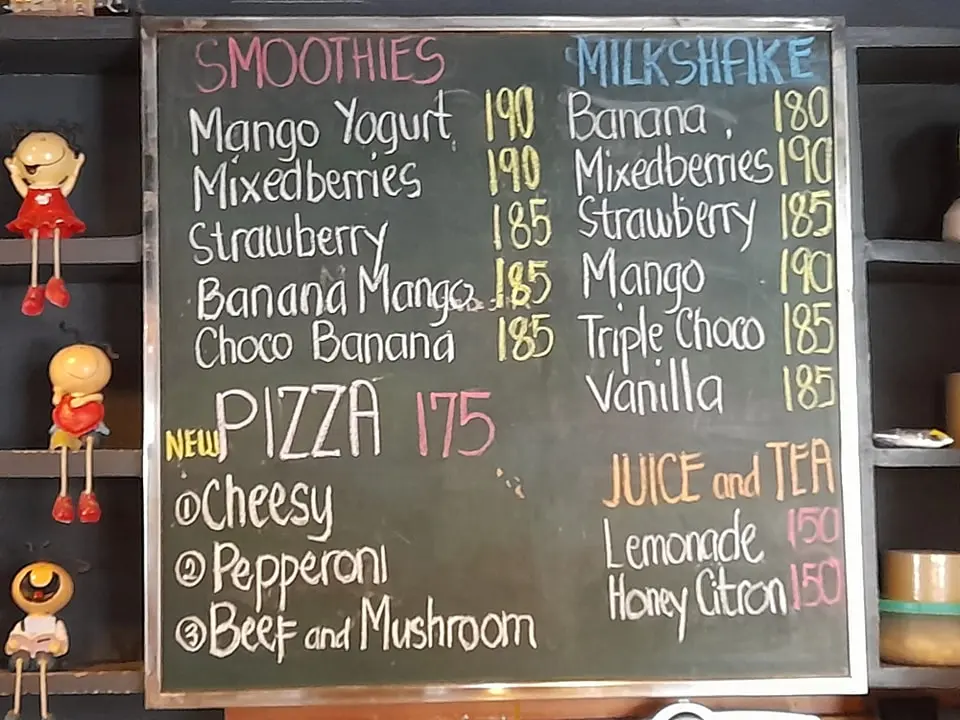 SMOOTHIES
Mango Yogurt 190
Mixedberries 190
Strawberry 185
Banana Mango 185
Choco Banana 185
NEW PIZZA 175
① Cheesy
② Pepperoni
③ Beef and Mushroom
MILKSHAKE
Banana 180
Mixedberries 190
Strawberry 185
Mango 190
Triple Choco 185
Vanilla 185
JUICE and TEA
Lemonade 150
Honey Citron 150